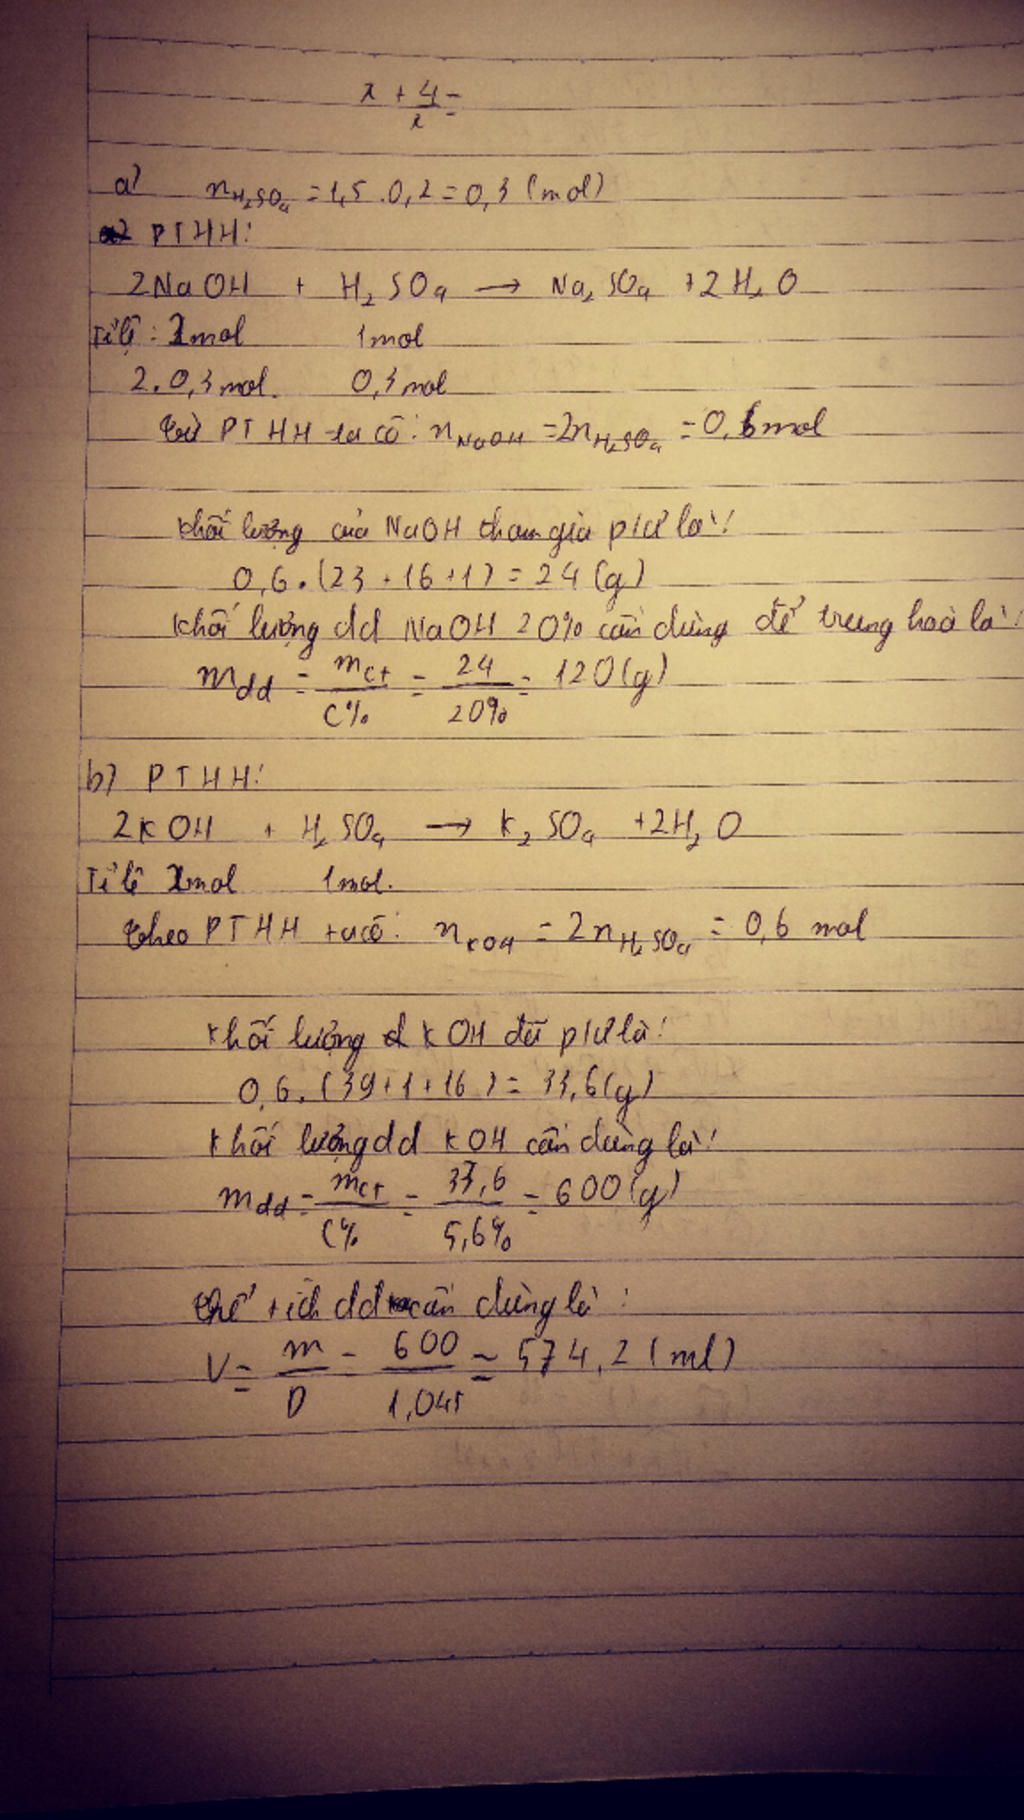 x + 4 =
x
a) nH₂SO₄ = 1,5 . 0,2 = 0,3 (mol)
PTHH:
2NaOH + H₂SO₄ → Na₂SO₄ + 2H₂O
Tỉ lệ : 2mol 1mol
2.0,3mol. 0,3mol
từ PTHH ta có: nNaOH = 2nH₂SO₄ = 0,6mol
khối lượng của NaOH tham gia p/ư là:
0,6.(23+16+1) = 24(g)
khối lượng dd NaOH 20% cần dùng để trung hoà là:
mdd = mct/C% = 24/20% = 120(g)
b) PTHH:
2KOH + H₂SO₄ → K₂SO₄ + 2H₂O
Tỉ lệ 2mol 1mol.
theo PTHH ta có: nKOH = 2nH₂SO₄ = 0,6 mol
Khối lượng KOH đã p/ư là:
0,6.(39+1+16) = 33,6(g)
Khối lượng dd KOH cần dùng là:
mdd = mct/C% = 33,6/5,6% = 600(g)
thể tích dd cần dùng là :
V = m/D = 600/1,045 = 574,2 (ml)